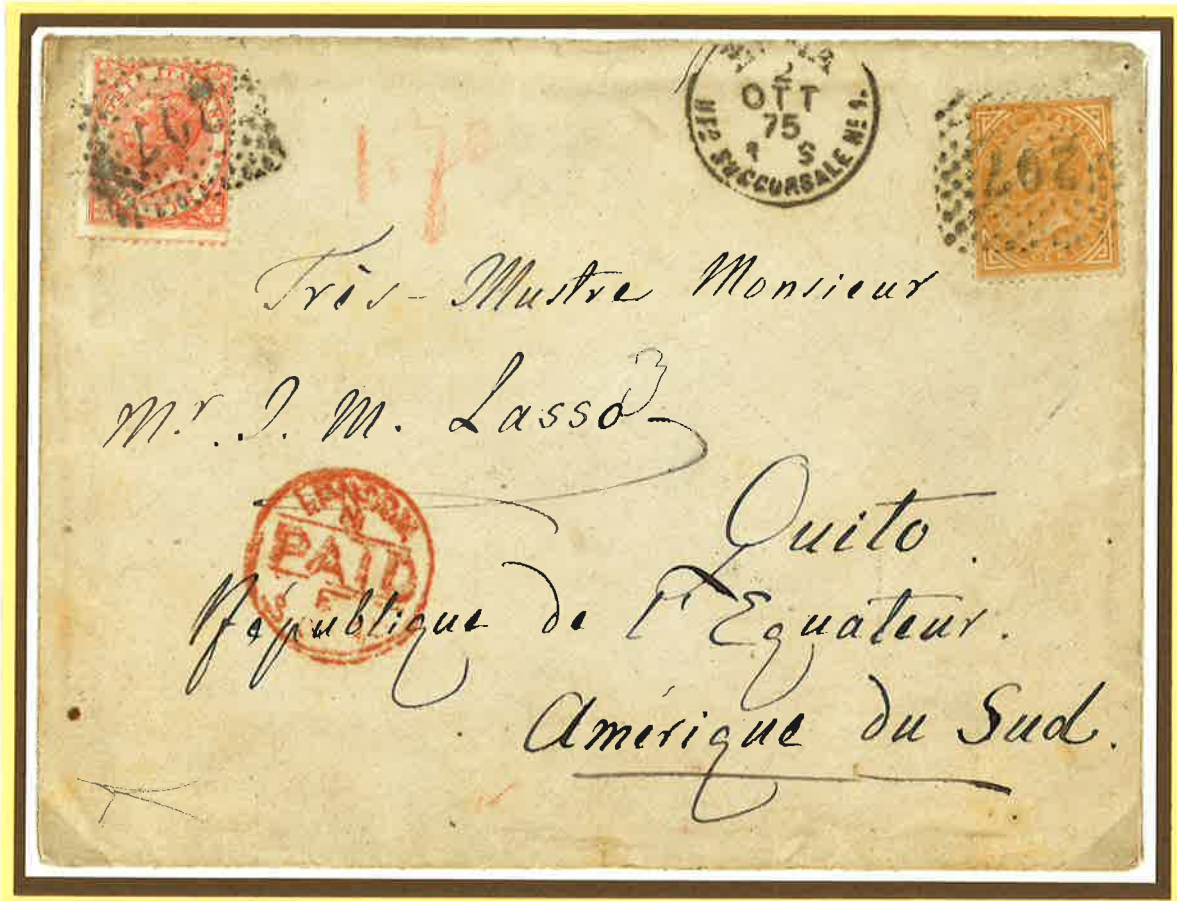 297
1.70
2
OTT
75
S
UF? SUCCURSALE Nº 1.
297
Très-Illustre Monsieur
Mr. J. M. Lasso
LONDON
PAID
Quito.
République de l'Equateur.
Amérique du Sud.